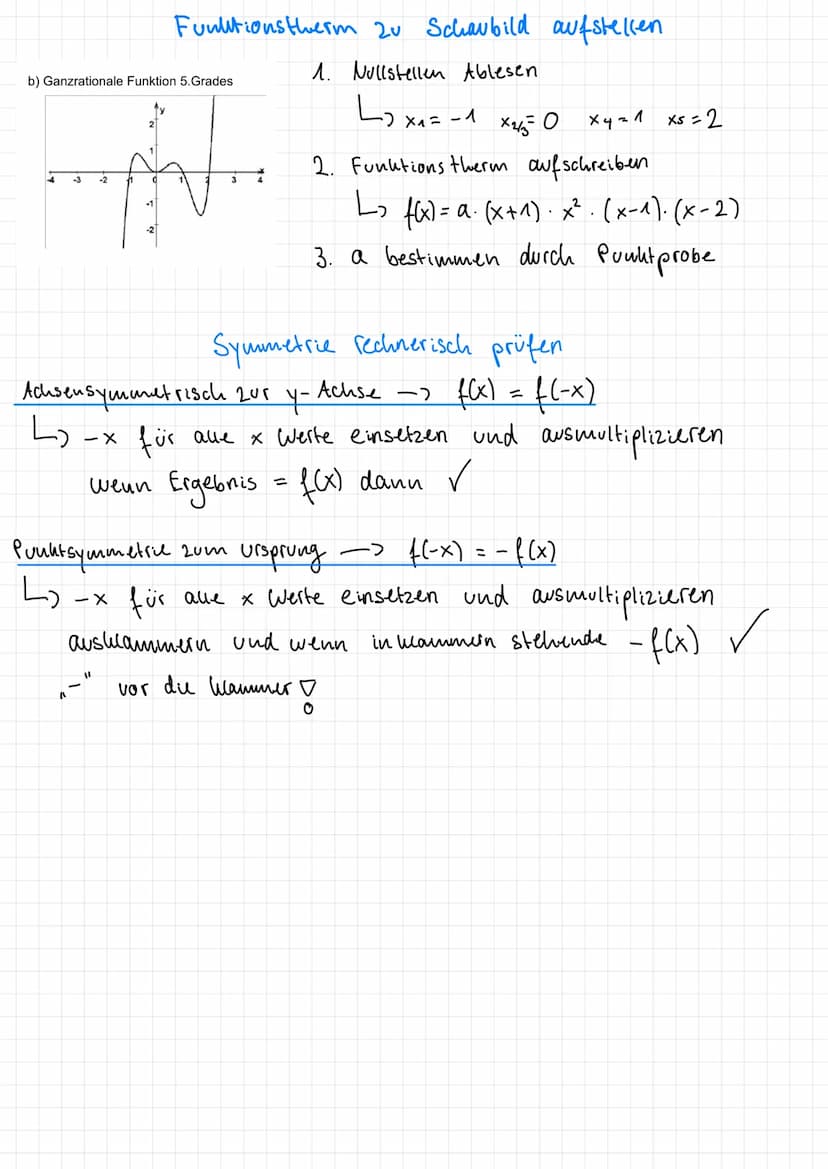 Funktionstherm zu Schaubild aufstellen
b) Ganzrationale Funktion 5.Grades
y
2
1
-4 -3 -2 -1 0 1 2 3 4 x
-1
-2
1. Nullstellen Ablesen
↳ x₁ = -1 x₂/₃ = 0 x₄ = 1 x₅ = 2
2. Funktionstherm aufschreiben
↳ f(x) = a · (x+1) · x² · (x-1) · (x-2)
3. a bestimmen durch Punktprobe
Symmetrie rechnerisch prüfen
Achsensymmetrisch zur y-Achse → f(x) = f(-x)
↳ -x für alle x Werte einsetzen und ausmultiplizieren
wenn Ergebnis = f(x) dann ✓
Punktsymmetrie zum Ursprung → f(-x) = -f(x)
↳ -x für alle x Werte einsetzen und ausmultiplizieren
ausklammern und wenn in klammern stehende -f(x) ✓
„-" vor die klammer !